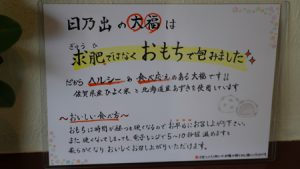 日乃出の大福は
ぎゅうひ
求肥ではなくおもちで包みました
だから ヘルシー で 食べ応え のある大福です!!
佐賀県産ひよく米と北海道産あずきを使用しています
～おいしい食べ方～
おもちは時間が経つと硬くなるのでお早めにお召し上がり下さい。
また硬くなってしまっても電子レンジで5～10秒程温めますと
柔らかくなりおいしくお召し上がりいただけます。